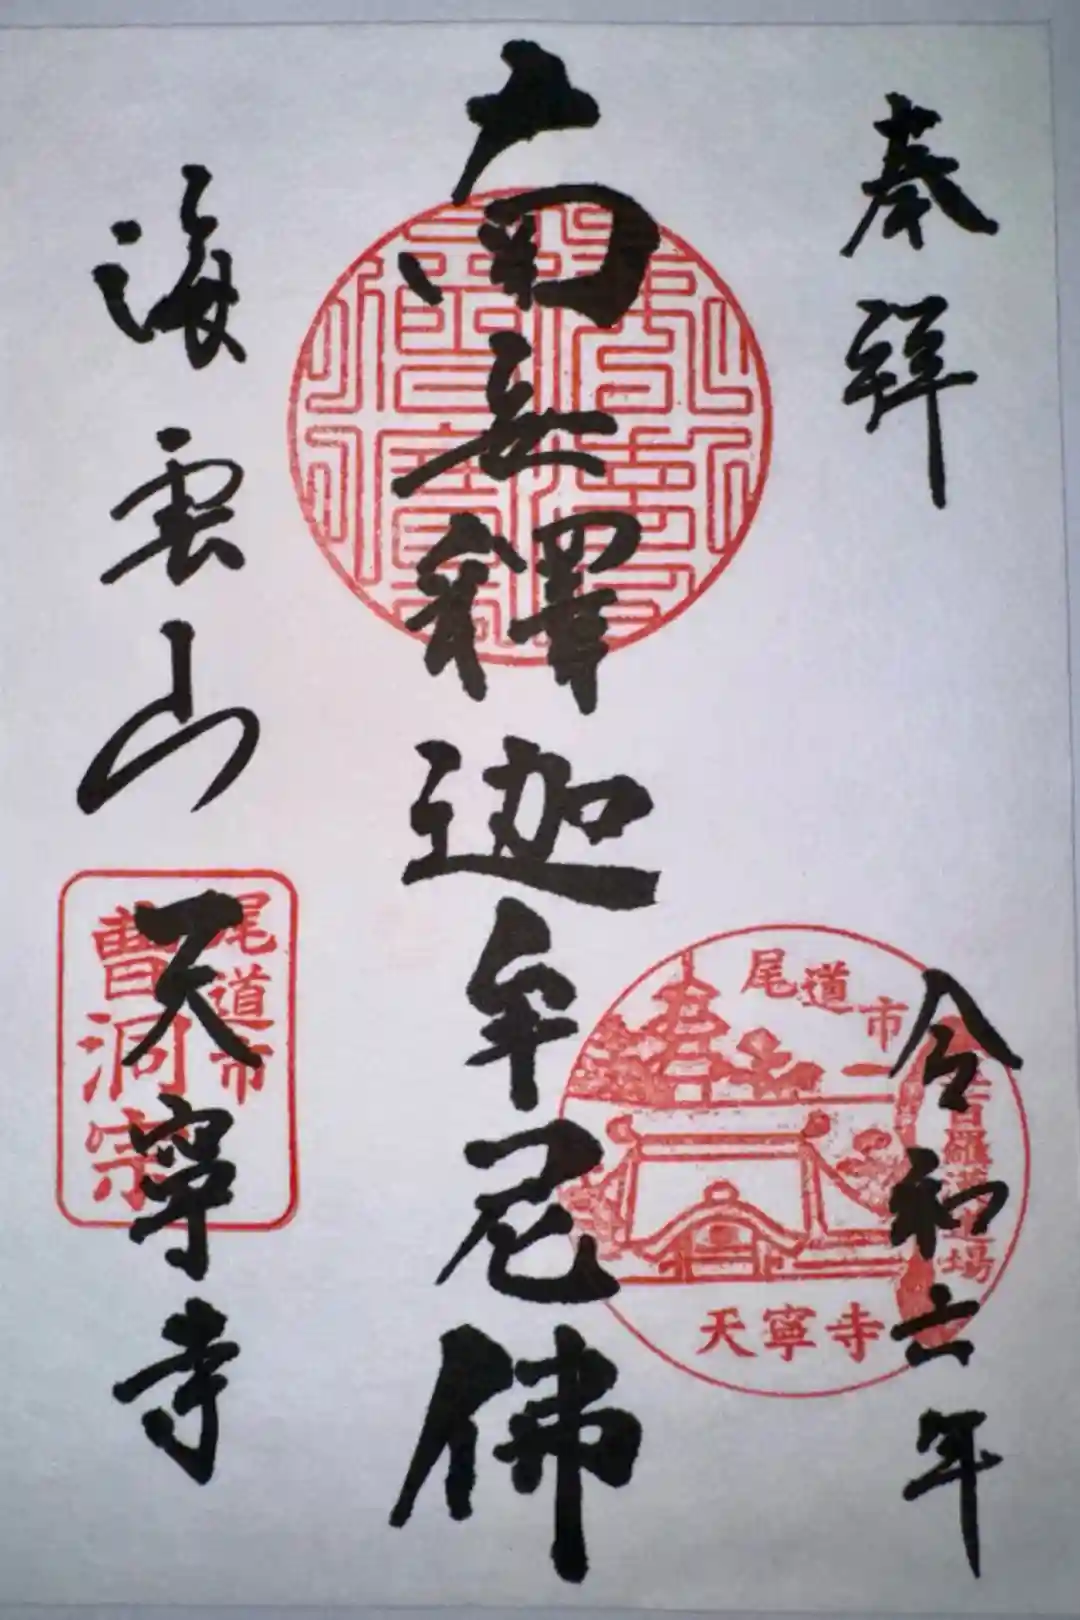 奉拜
令和六年
南無釋迦牟尼佛
海雲山
天寧寺
尾道市
天寧寺
尾道市
曹洞宗